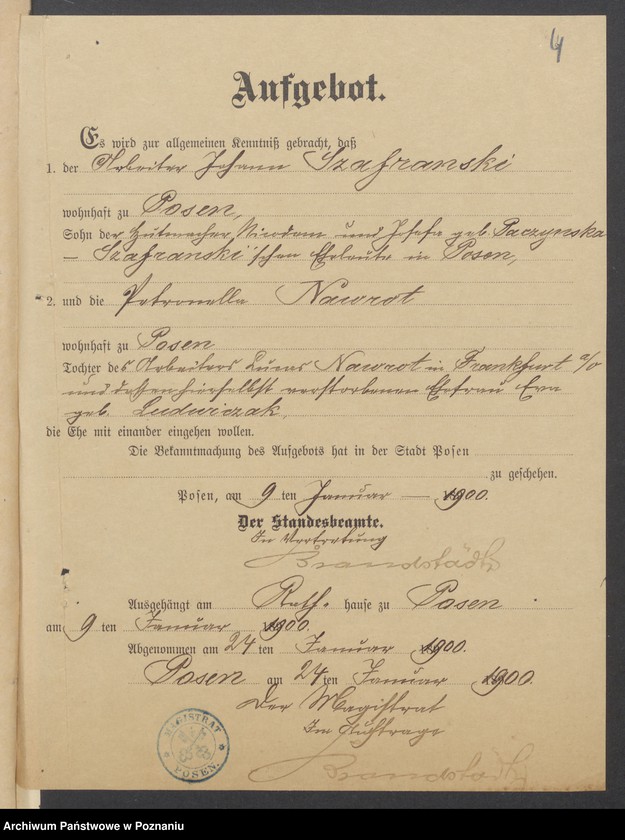 4
Aufgebot.
Es wird zur allgemeinen Kenntniß gebracht, daß
1. der Arbeiter Johann Szafranski
wohnhaft zu Posen,
Sohn der Hutmacher Nicodem und Josefa geb. Paczynska
— Szafranski'schen Eheleute in Posen,
2. und die Petronella Nawrot
wohnhaft zu Posen
Tochter des Arbeiters Lucas Nawrot in Frankfurt a/O
und dessen hierselbst verstorbenen Ehefrau Eva
geb. Ludwiczak,
die Ehe mit einander eingehen wollen.
Die Bekanntmachung des Aufgebots hat in der Stadt Posen
zu geschehen.
Posen, am 9 ten Januar — 1900.
Der Standesbeamte.
In Vertretung
Brandstädt
Ausgehängt am Rath- hause zu Posen
am 9 ten Januar 1900.
Abgenommen am 24 ten Januar 1900.
Posen am 24 ten Januar 1900.
Der Magistrat
Im Auftrage
Brandstädt
MAGISTRAT
POSEN.
Archiwum Państwowe w Poznaniu